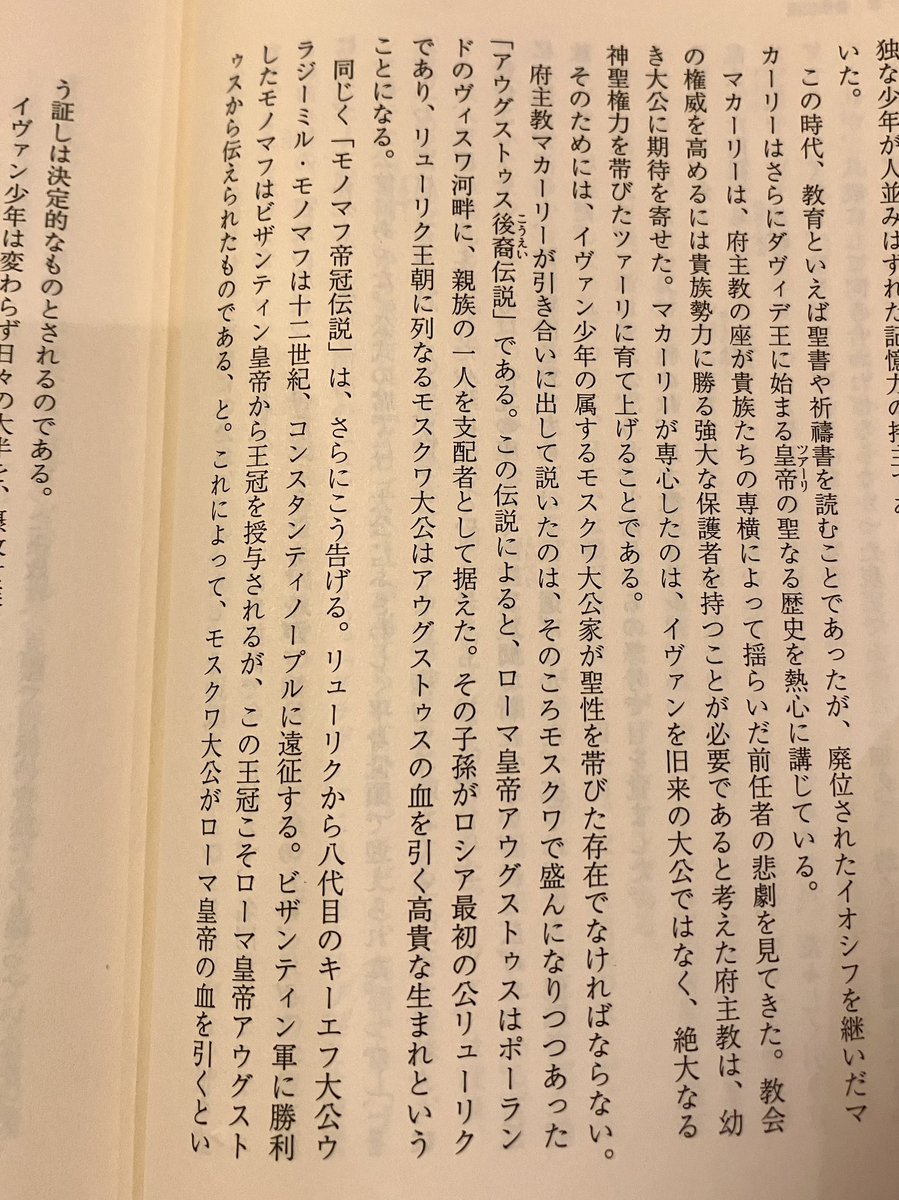 独な少年が人並みはずれた記憶力の持主で、あ
いた。
この時代、教育といえば聖書や祈禱書を読むことであったが、廃位されたイオシフを継いだマ
カーリーはさらにダヴィデ王に始まる皇帝の聖なる歴史を熱心に講じている。
ツァーリ
マカーリーは、府主教の座が貴族たちの専横によって揺らいだ前任者の悲劇を見てきた。教会
の権威を高めるには貴族勢力に勝る強大な保護者を持つことが必要であると考えた府主教は、幼
き大公に期待を寄せた。マカーリーが専心したのは、イヴァンを旧来の大公ではなく、絶大なる
神聖権力を帯びたツァーリに育て上げることである。
そのためには、イヴァン少年の属するモスクワ大公家が聖性を帯びた存在でなければならない。
府主教マカーリーが引き合いに出して説いたのは、そのころモスクワで盛んになりつつあった
「アウグストゥス後裔伝説」である。この伝説によると、ローマ皇帝アウグストゥスはポーラン
こうえい
ドのヴィスワ河畔に、親族の一人を支配者として据えた。その子孫がロシア最初の公リューリク
であり、リューリク王朝に列なるモスクワ大公はアウグストゥスの血を引く高貴な生まれという
ことになる。
同じく「モノマフ帝冠伝説」は、さらにこう告げる。リューリクから八代目のキーエフ大公ウ
ラジーミル・モノマフは十二世紀、コンスタンティノープルに遠征する。ビザンティン軍に勝利
したモノマフはビザンティン皇帝から王冠を授与されるが、この王冠こそローマ皇帝アウグスト
ゥスから伝えられたものである、と。これによって、モスクワ大公がローマ皇帝の血を引くとい
う証しは決定的なものとされるのである。
イヴァン少年は変わらず日々の大半を、